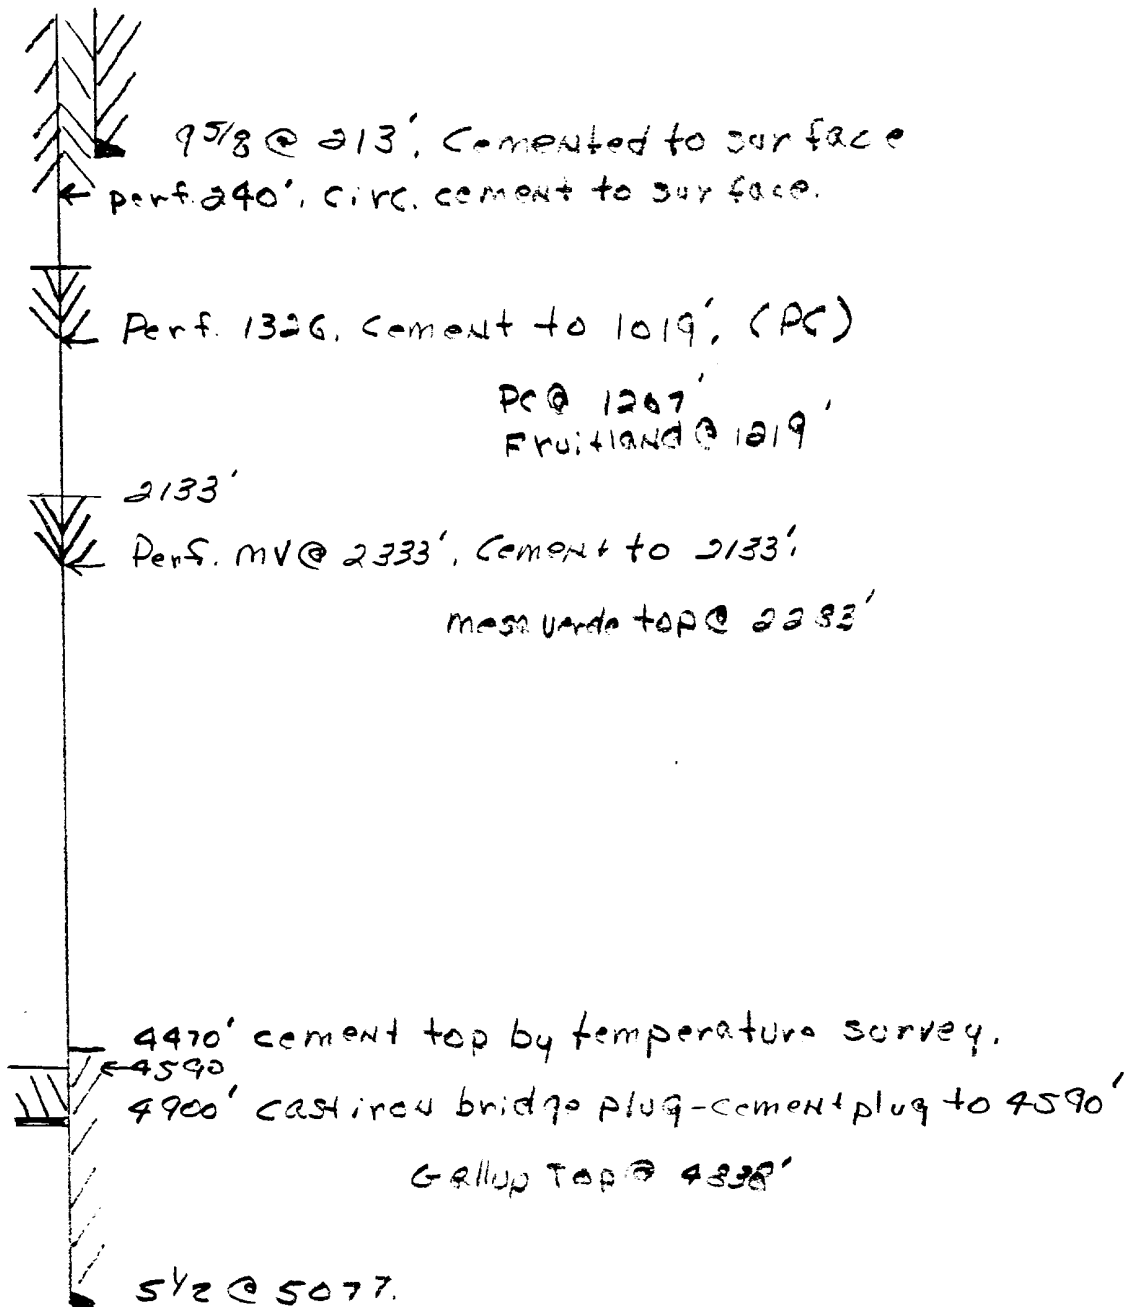 9 5/8 @ 213', Cemented to surface
perf. 240', circ. cement to surface.
Perf. 1326, Cement to 1019', (PC)
PC @ 1267'
Fruitland @ 1219'
2133'
Perf. MV @ 2333', Cement to 2133'.
mesa verde top @ 2283'
4470' cement top by temperature survey.
4590
4900' cast iron bridge plug-cement plug to 4590'
Gallup Top @ 4838'
5 1/2 @ 5077.